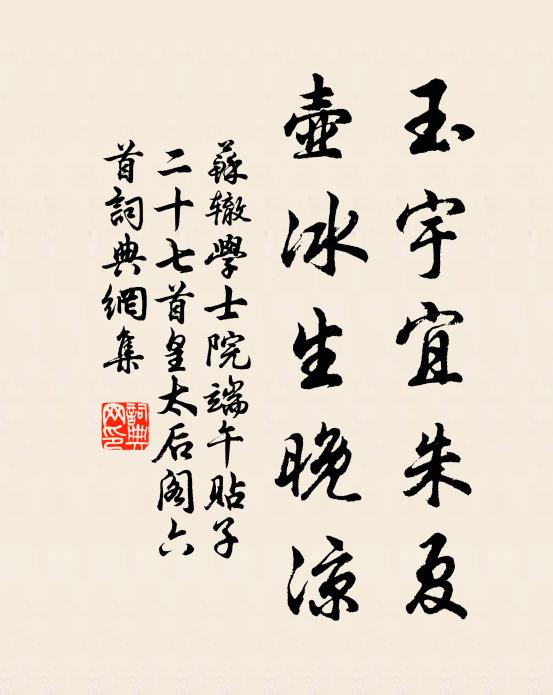 玉宇宜朱夏
壶冰生晚凉
蘇辙學士院端午貼子
二十七首皇太后阁六
首詞典網集
詞典网印